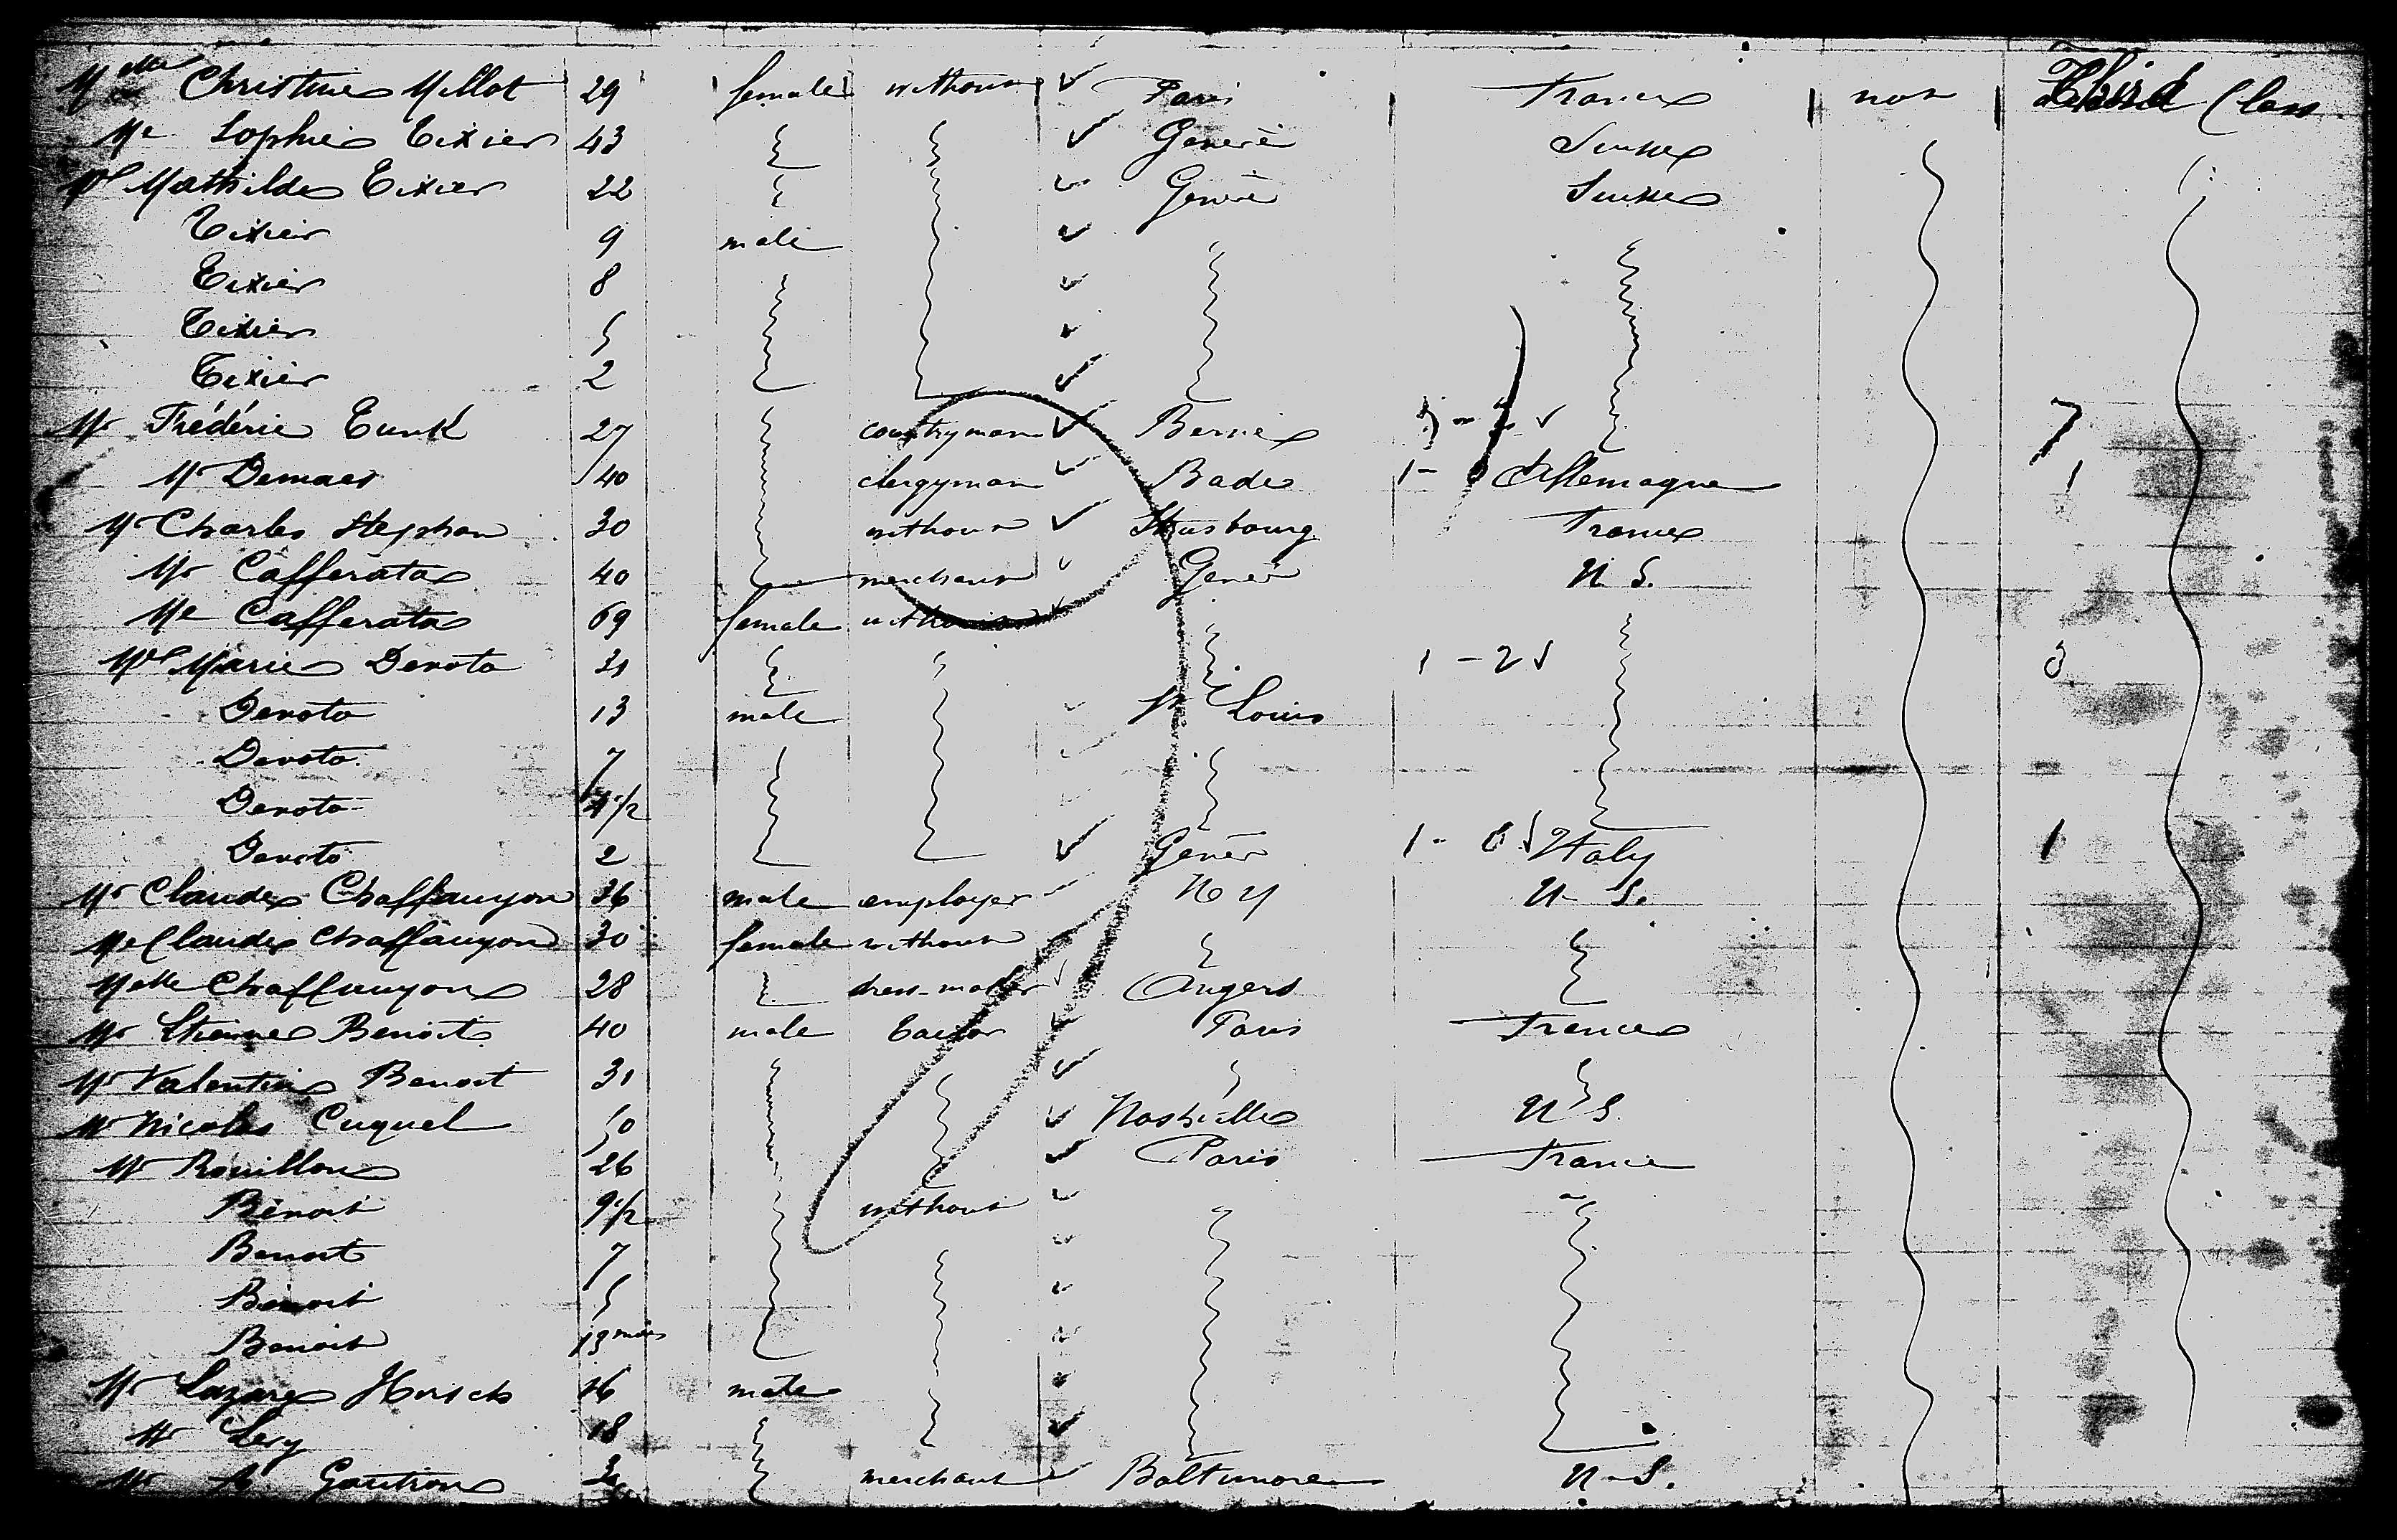 Melle Christine Millot 29 female without Paris France non Third Class
Me Sophie Tixier 43 Genève Suisse
Mel Mathilde Tixier 22 Genève Suisse
Tixier 9 male
Tixier 8
Tixier 5
Tixier 2
Mr Frédéric Tunk 27 countryman Berne 7
Mr Demaer 40 clergyman Bade 1- Allemagne 1
Mr Charles Stephan 30 without Strasbourg France
Mr Cafferata 40 merchant Genes U. S.
Me Cafferata 69 female without
Mel Marie Devoto 31 1 - 2 3
Devoto 13 male St Louis
Devoto 7
Devoto 4 1/2
Devoto 2 Genes 1 - 0 Italy 1
Mr Claude Chaffanyon 36 male employer N Y U. S.
Me Claude Chaffanyon 30 female without
Melle Chaffanyon 28 dress-maker Angers
Mr Etienne Benoit 40 male Tailor Paris France
Mr Valentin Benoit 31
Mr Nicolas Cuquel 50 Nashville U S.
Mr Rouillon 26 Paris France
Benoit 9 1/2 without
Benoit 7
Benoit 5
Benoit 19 mois
Mr Lazare Hirsch 16 male
Mr Levy 18
Mr A. Gautron merchant Baltimore U. S.